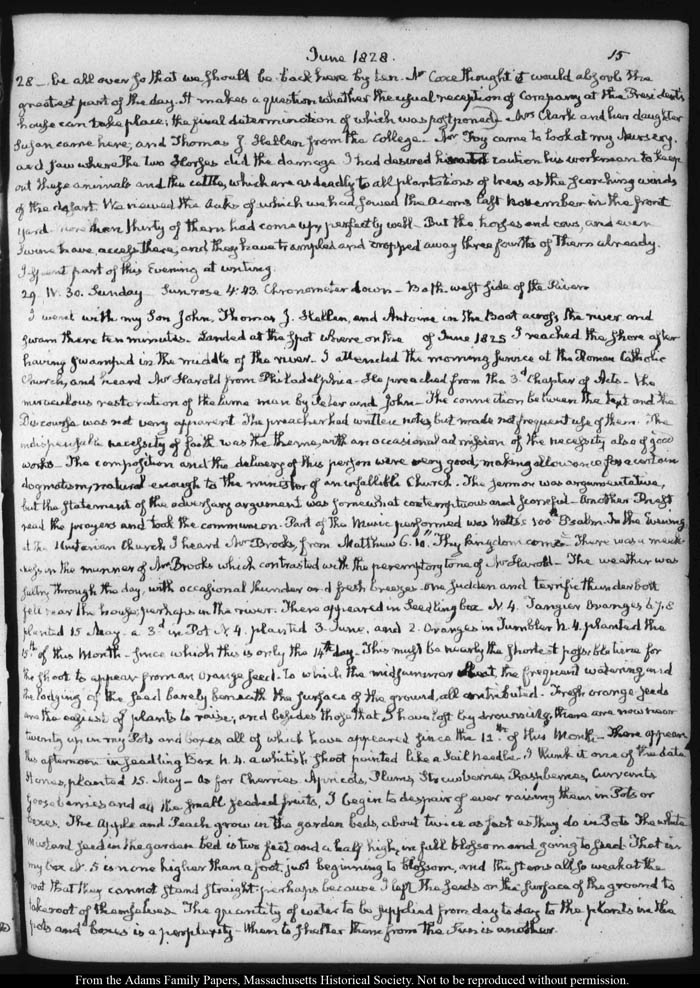 June 1828.
15
28 — be all over so that we should be back here by ten. Mr Coxe thought it would absorb the
greatest part of the day. It makes a question whether the usual reception of company at the President's
house can take place; the final determination of which was postponed — Mrs Clark and her daughter
Susan came here; and Thomas J. Hellen from the College. Mr Foy came to look at my Nursery.
and saw where the two Horses did the damage. I had desired him to caution his workmen to keep
out these animals and the cattle, which are as deadly to all plantations of trees as the scorching winds
of the desart. We viewed the Oaks of which we had sowed the Acorns last November in the front
yard — more than thirty of them had come up, perfectly well — But the horses and cows, and even
swine have access there, and they have trampled and cropped away three fourths of them already.
I spent part of this Evening at writing.
29. IV. 30. Sunday — Sun rose 4:43. Chronometer down — Bath west side of the River
I went with my Son John, Thomas J. Hellen, and Antoine in the Boat across the river and
swam there ten minutes. Landed at the spot where on the of June 1825 I reached the shore after
having swamped in the middle of the river. I attended the morning service at the Roman Catholic
Church, and heard Mr Harold from Philadelphia — He preached from the 3d Chapter of Acts — the
miraculous restoration of the lame man by Peter and John — The connection between the text and the
Discourse was not very apparent. The preacher had written notes, but made not frequent use of them. The
indispensable necessity of faith was the theme, with an occasional admission of the necessity also of good
works — The composition and the delivery of this person were very good, making allowance for a certain
dogmatism, natural enough to the minister of an infallible Church. The sermon was argumentative,
but the statement of the adversary argument was somewhat contemptuous and scornful — Another Priest
read the prayers and took the communion. Part of the Music performed was Watts's 100th Psalm. In the Evening
at the Unitarian Church I heard Mr Brooks, from Matthew 6. 10. "Thy kingdom come" — There was a meek-
ness in the manner of Mr Brooks which contrasted with the peremptory tone of Mr Harold — The weather was
sultry through the day, with occasional thunder and fresh breezes. one sudden and terrific thunder bolt
fell near the house, perhaps in the river. There appeared in Seedling box N. 4. Tangier Oranges 6 7 &
planted 15 May — a 3d in Pot N 4. planted 3 June, and 2 Oranges in Tumbler N. 4. planted the
15th of this Month — since which this is only the 14th day — This must be nearly the shortest possible time for
the shoot to appear from an Orange seed. To which the midsummer heat, the frequent watering and
the lodging of the seed barely beneath the surface of the ground, all contributed. Fresh orange seeds
are the easiest of plants to raise; and besides those that I have lost by drowning, there are now near
twenty up in my Pots and boxes all of which have appeared since the 12th of this Month — There appeared
this afternoon in seedling Box N. 4. a whitish shoot pointed like a sail needle. I think it one of the date
stones, planted 15. May — As for Cherries Apricots, Plums, Strawberries Raspberries, Currants
Gooseberries and all the small seeded fruits, I begin to despair of ever raising them in Pots or
boxes. The Apple and Peach grow in the garden beds, about twice as fast as they do in Pots. The white
Mustard seed in the garden bed is two feet and a half high, in full blossom and going to seed. That in
my box N. 5 is none higher than a foot, just beginning to blossom, and the stems all so weak at the
root that they cannot stand straight; perhaps because I left the seeds on the surface of the ground to
take root of themselves. The quantity of water to be supplied from day to day to the plants in the
pots and boxes is a perplexity — When to shelter them from the Sun is another.
From the Adams Family Papers, Massachusetts Historical Society. Not to be reproduced without permission.